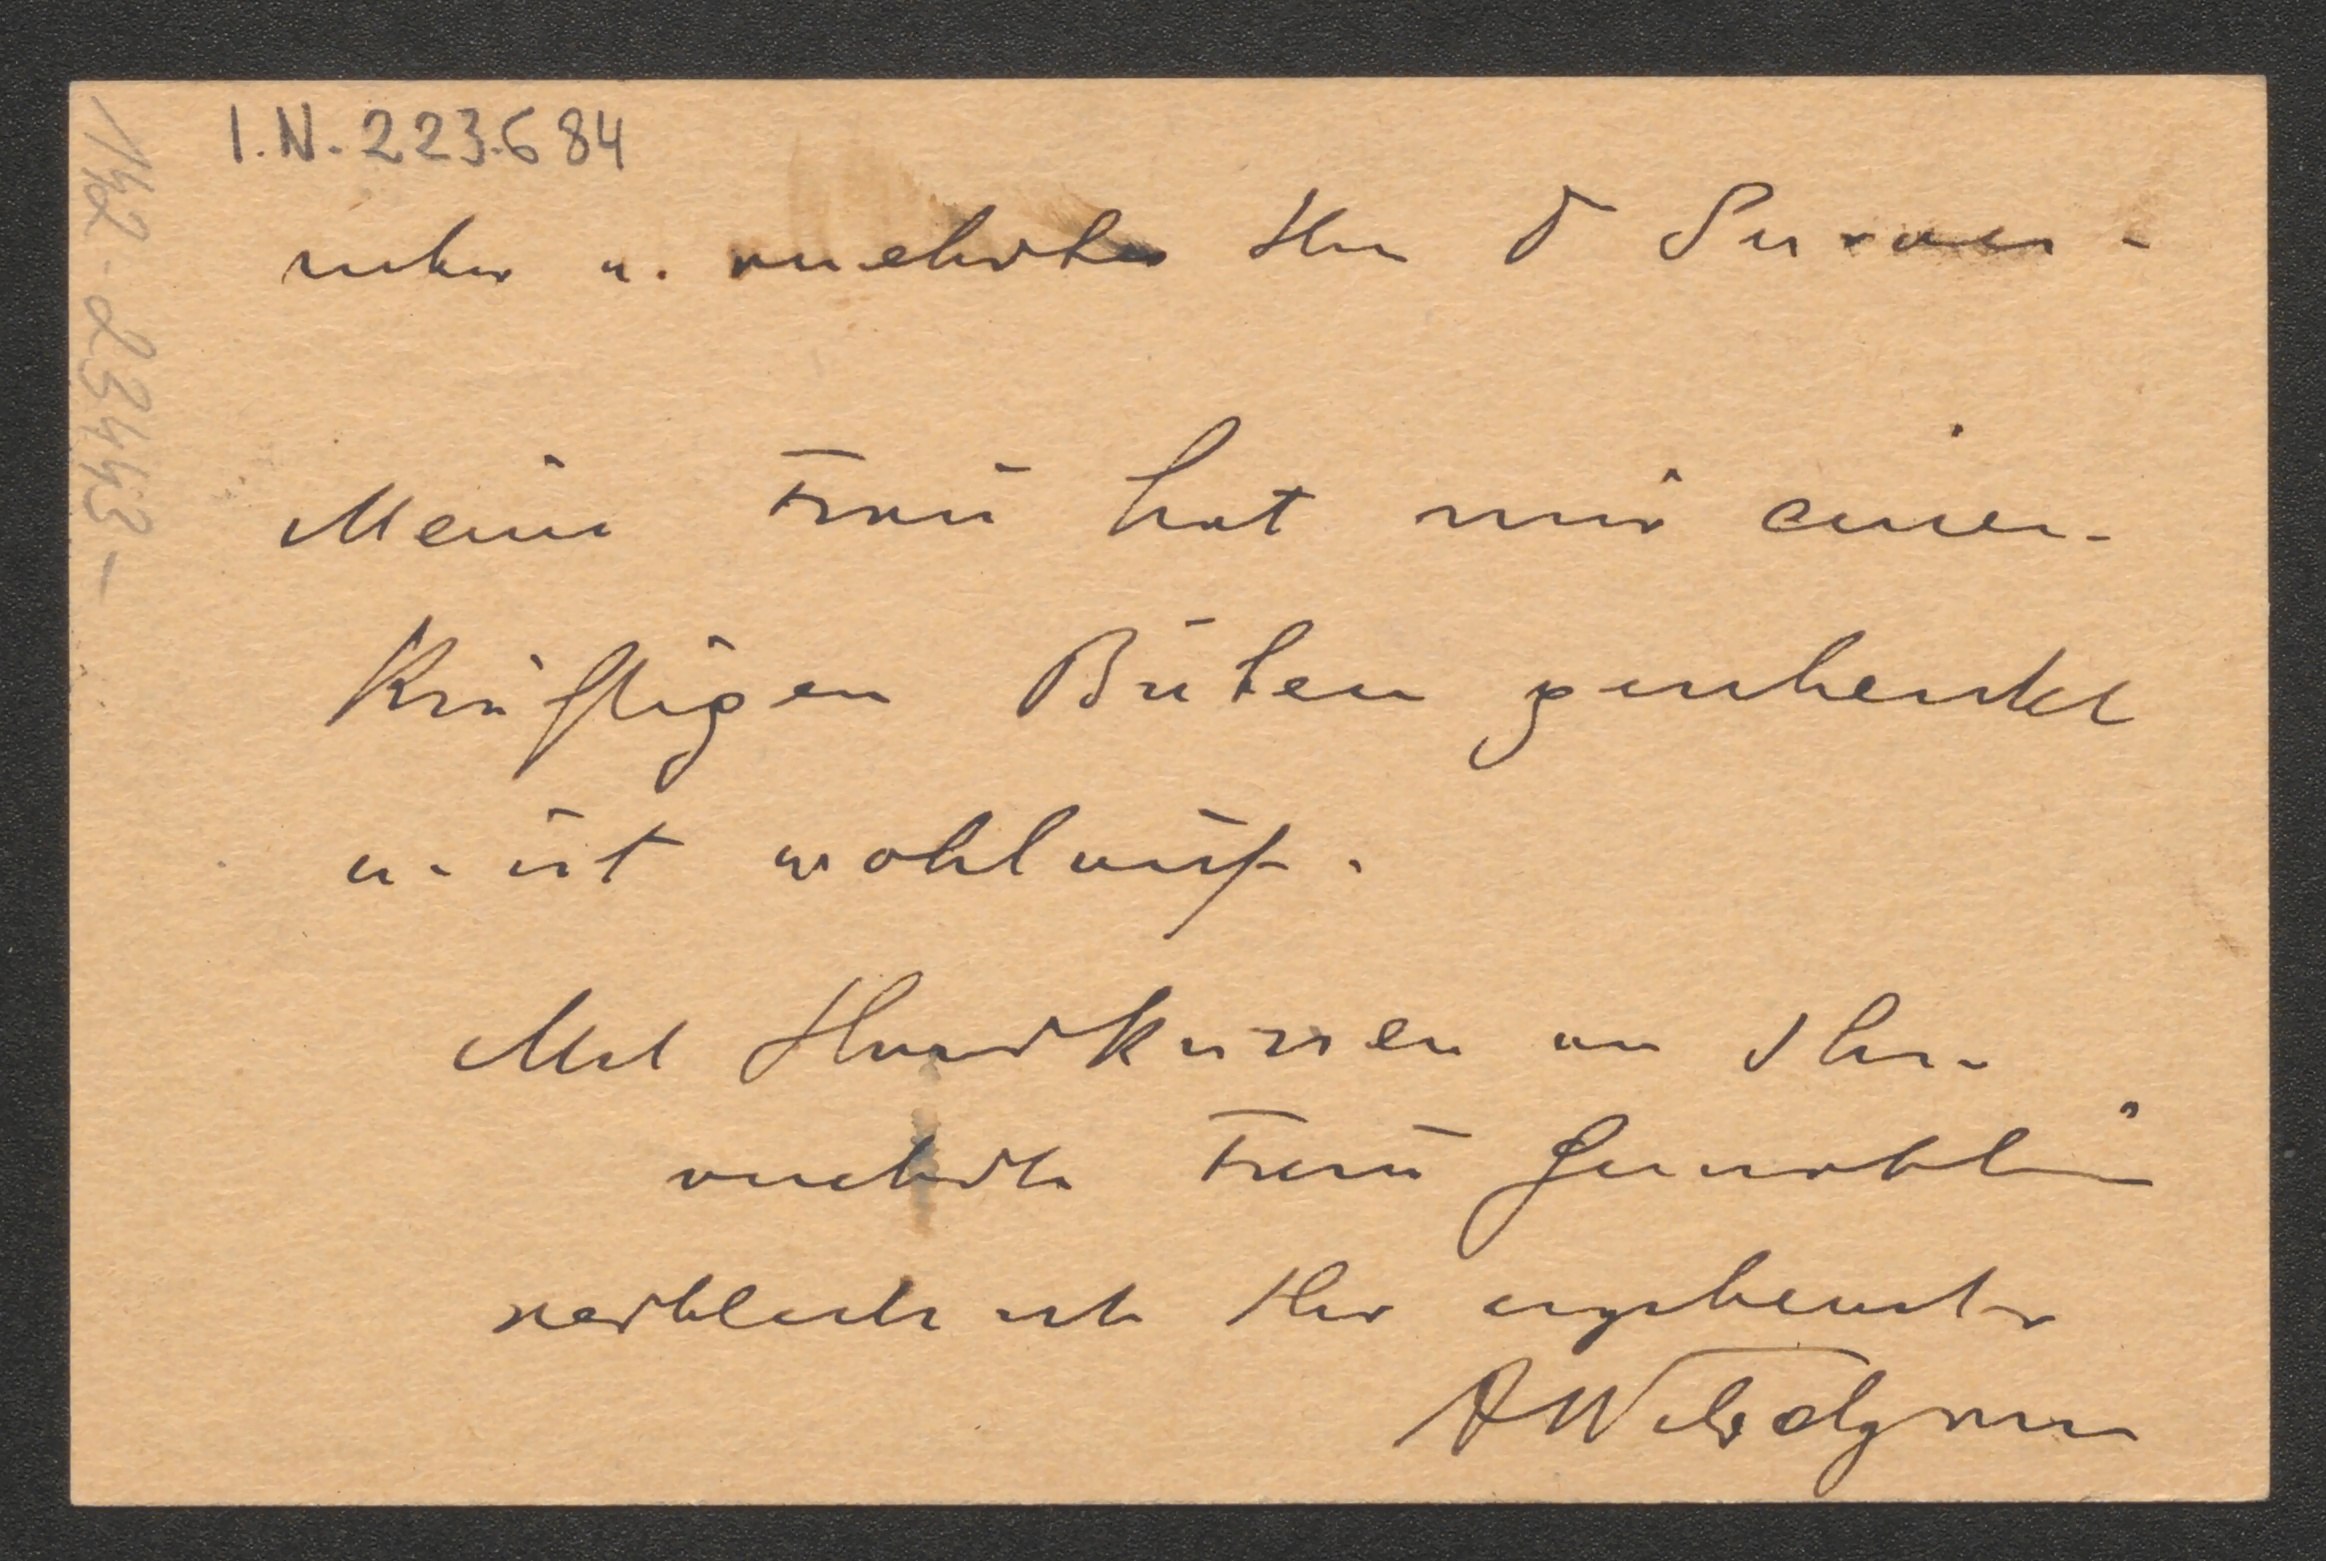 I.N. 223.684
142-23443-
lieber u. verehrter Herr D
Meine Frau hat mir einen
kräftigen Buben geschenkt
u. ist wohlauf.
Mit Handküssen an Ihre
verehrte Frau Gemahlin
herzlichst Ihr ergebenster
AWildgans